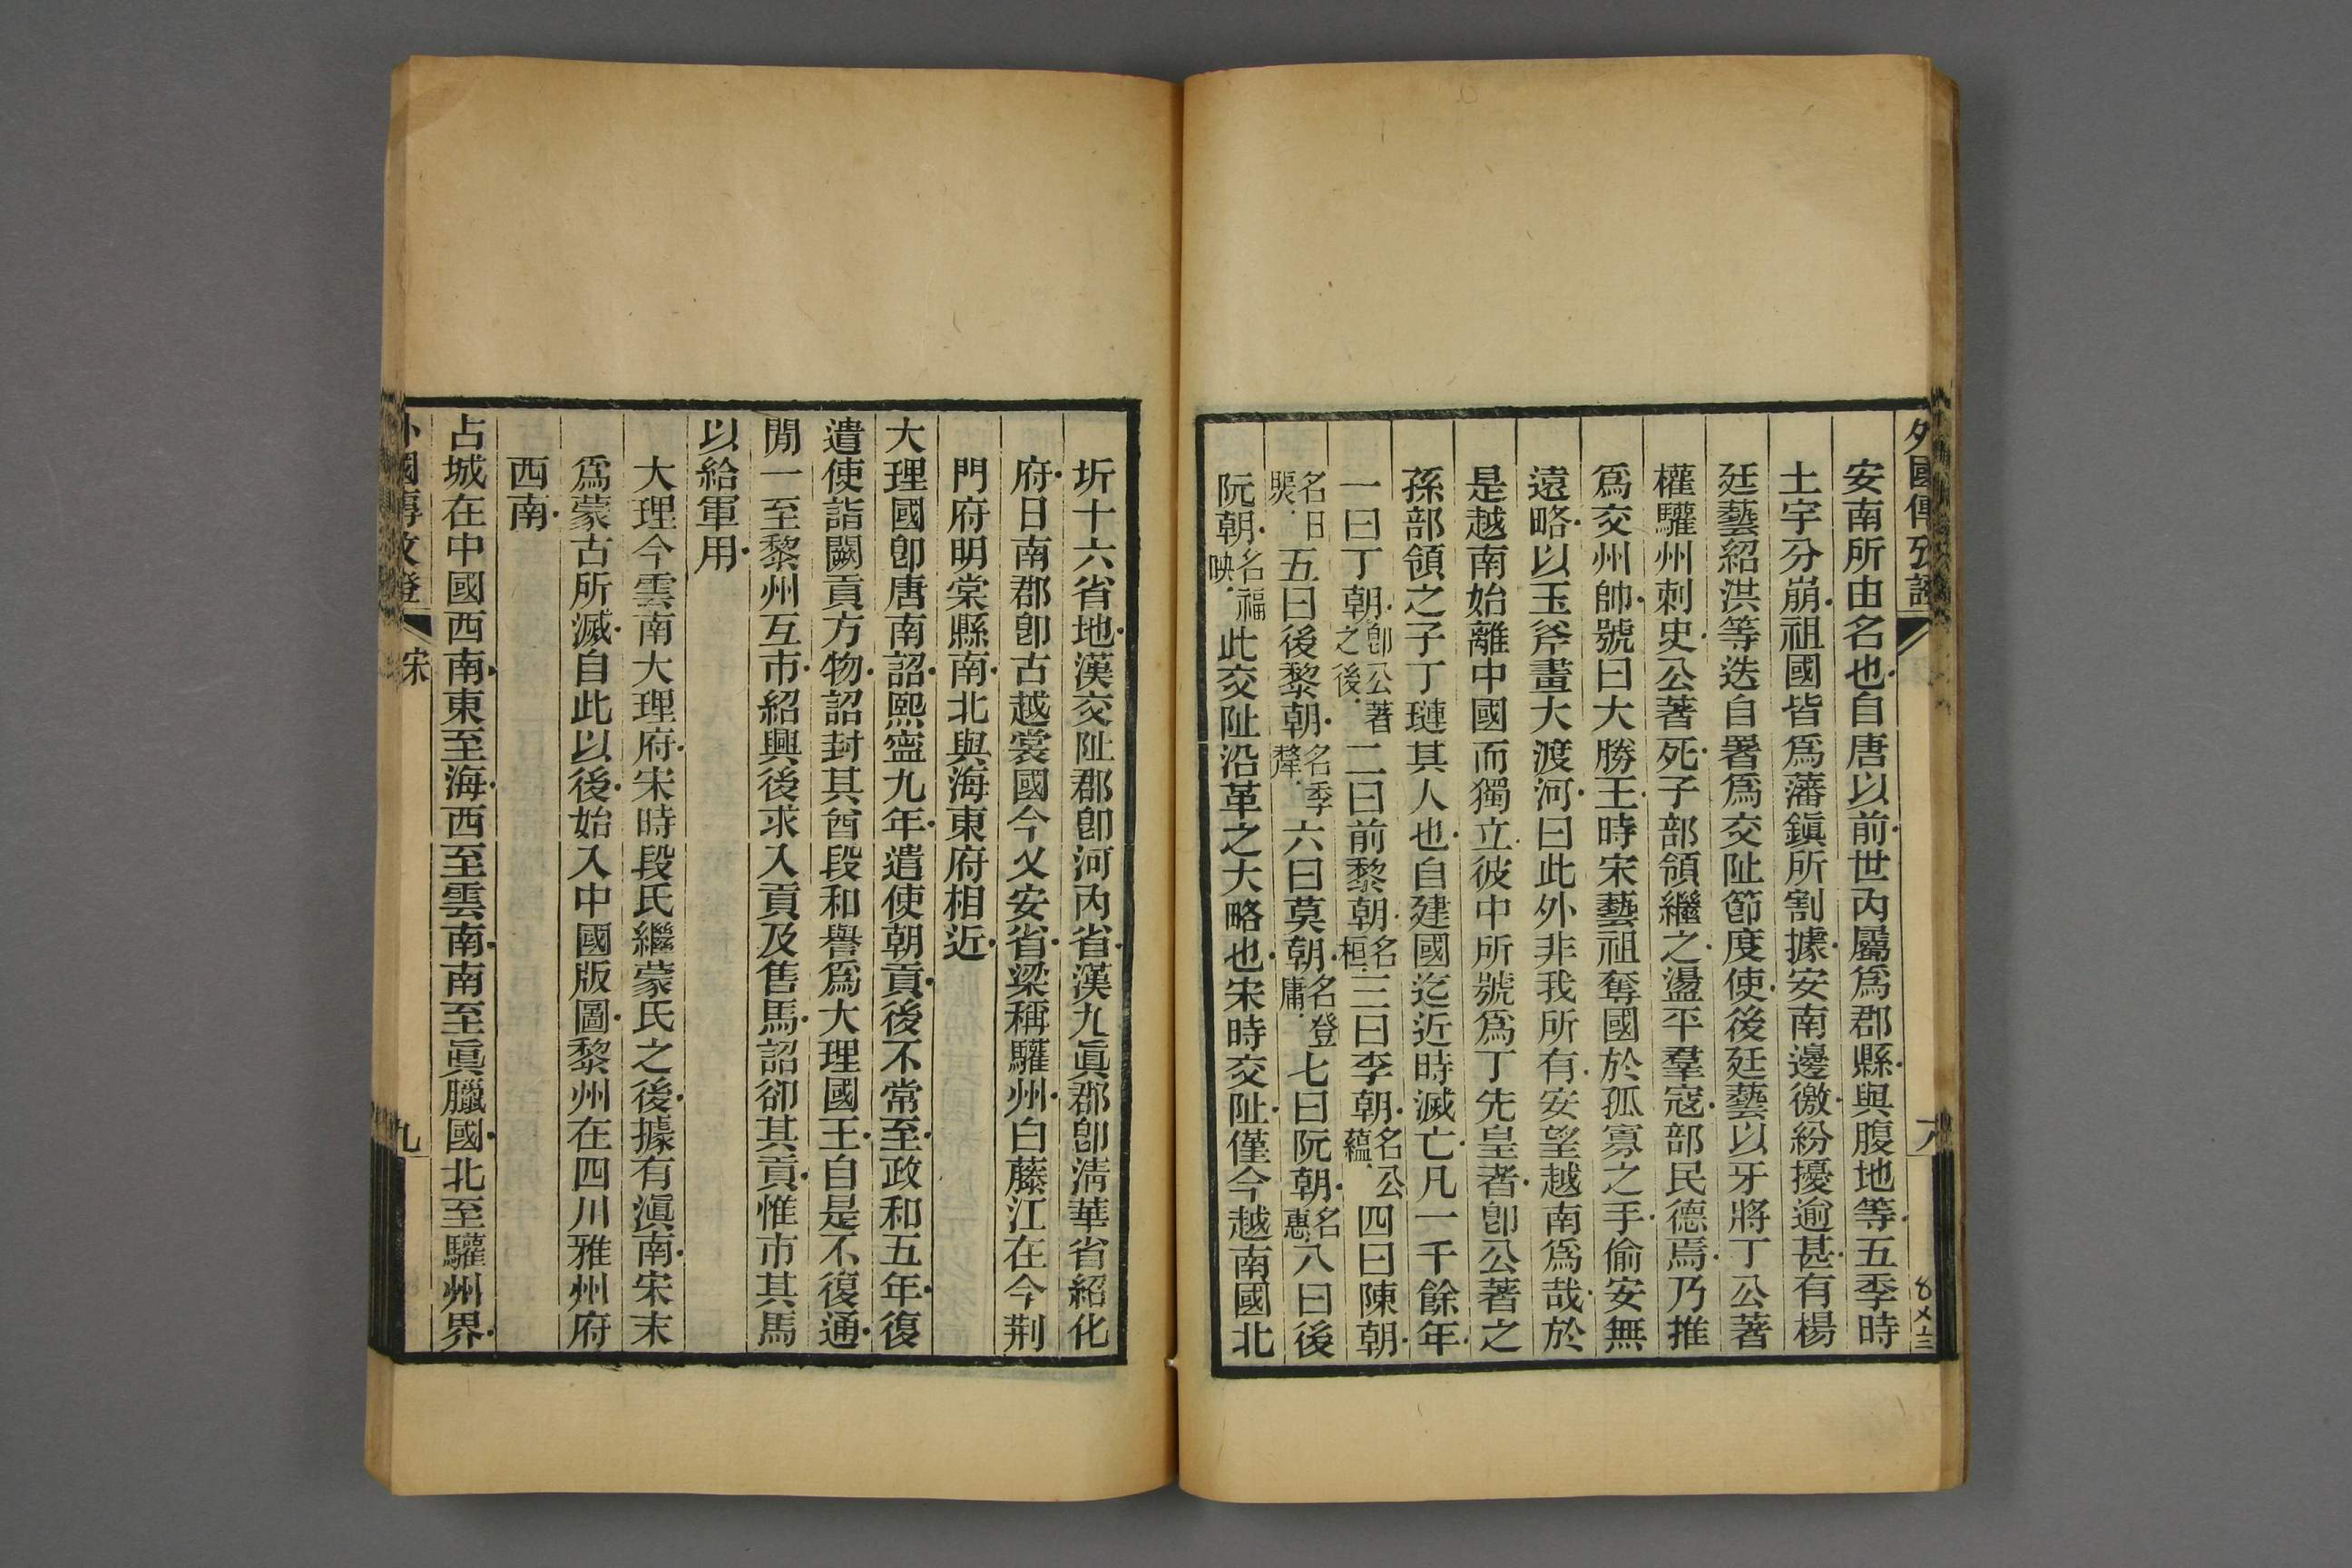 外國傳攷證
安南所由名也自唐以前世內屬爲郡縣與腹地等五季時
土宇分崩祖國皆爲藩鎭所割據安南邊徼紛擾逾甚有楊
廷藝紹洪等迭自署爲交阯節度使後廷藝以牙將丁公著
權驩州刺史公著死子部領繼之盪平羣寇部民德焉乃推
爲交州帥號曰大勝王時宋藝祖奪國於孤寡之手偷安無
遠略以玉斧畫大渡河曰此外非我所有安望越南爲哉於
是越南始離中國而獨立彼中所號爲丁先皇者卽公著之
孫部領之子丁璉其人也自建國迄近時滅亡凡一千餘年
一曰丁朝卽公著之後二曰前黎朝名桓三曰李朝名公蘊四曰陳朝
名日煚五曰後黎朝名季犛六曰莫朝名登庸七曰阮朝名惠八曰後
阮朝名福映此交阯沿革之大略也宋時交阯僅今越南國北
圻十六省地漢交阯郡卽河內省漢九眞郡卽淸華省紹化
府日南郡卽古越裳國今乂安省梁稱驩州白藤江在今荆
門府明棠縣南北與海東府相近
大理國卽唐南詔熙寍九年遣使朝貢後不常至政和五年復
遣使詣闕貢方物詔封其酋段和譽爲大理國王自是不復通
閒一至黎州互市紹興後求入貢及售馬詔卻其貢惟市其馬
以給軍用
大理今雲南大理府宋時段氏繼蒙氏之後據有滇南宋末
爲蒙古所滅自此以後始入中國版圖黎州在四川雅州府
西南
占城在中國西南東至海西至雲南南至眞臘國北至驩州界
外國傳攷證
宋
九